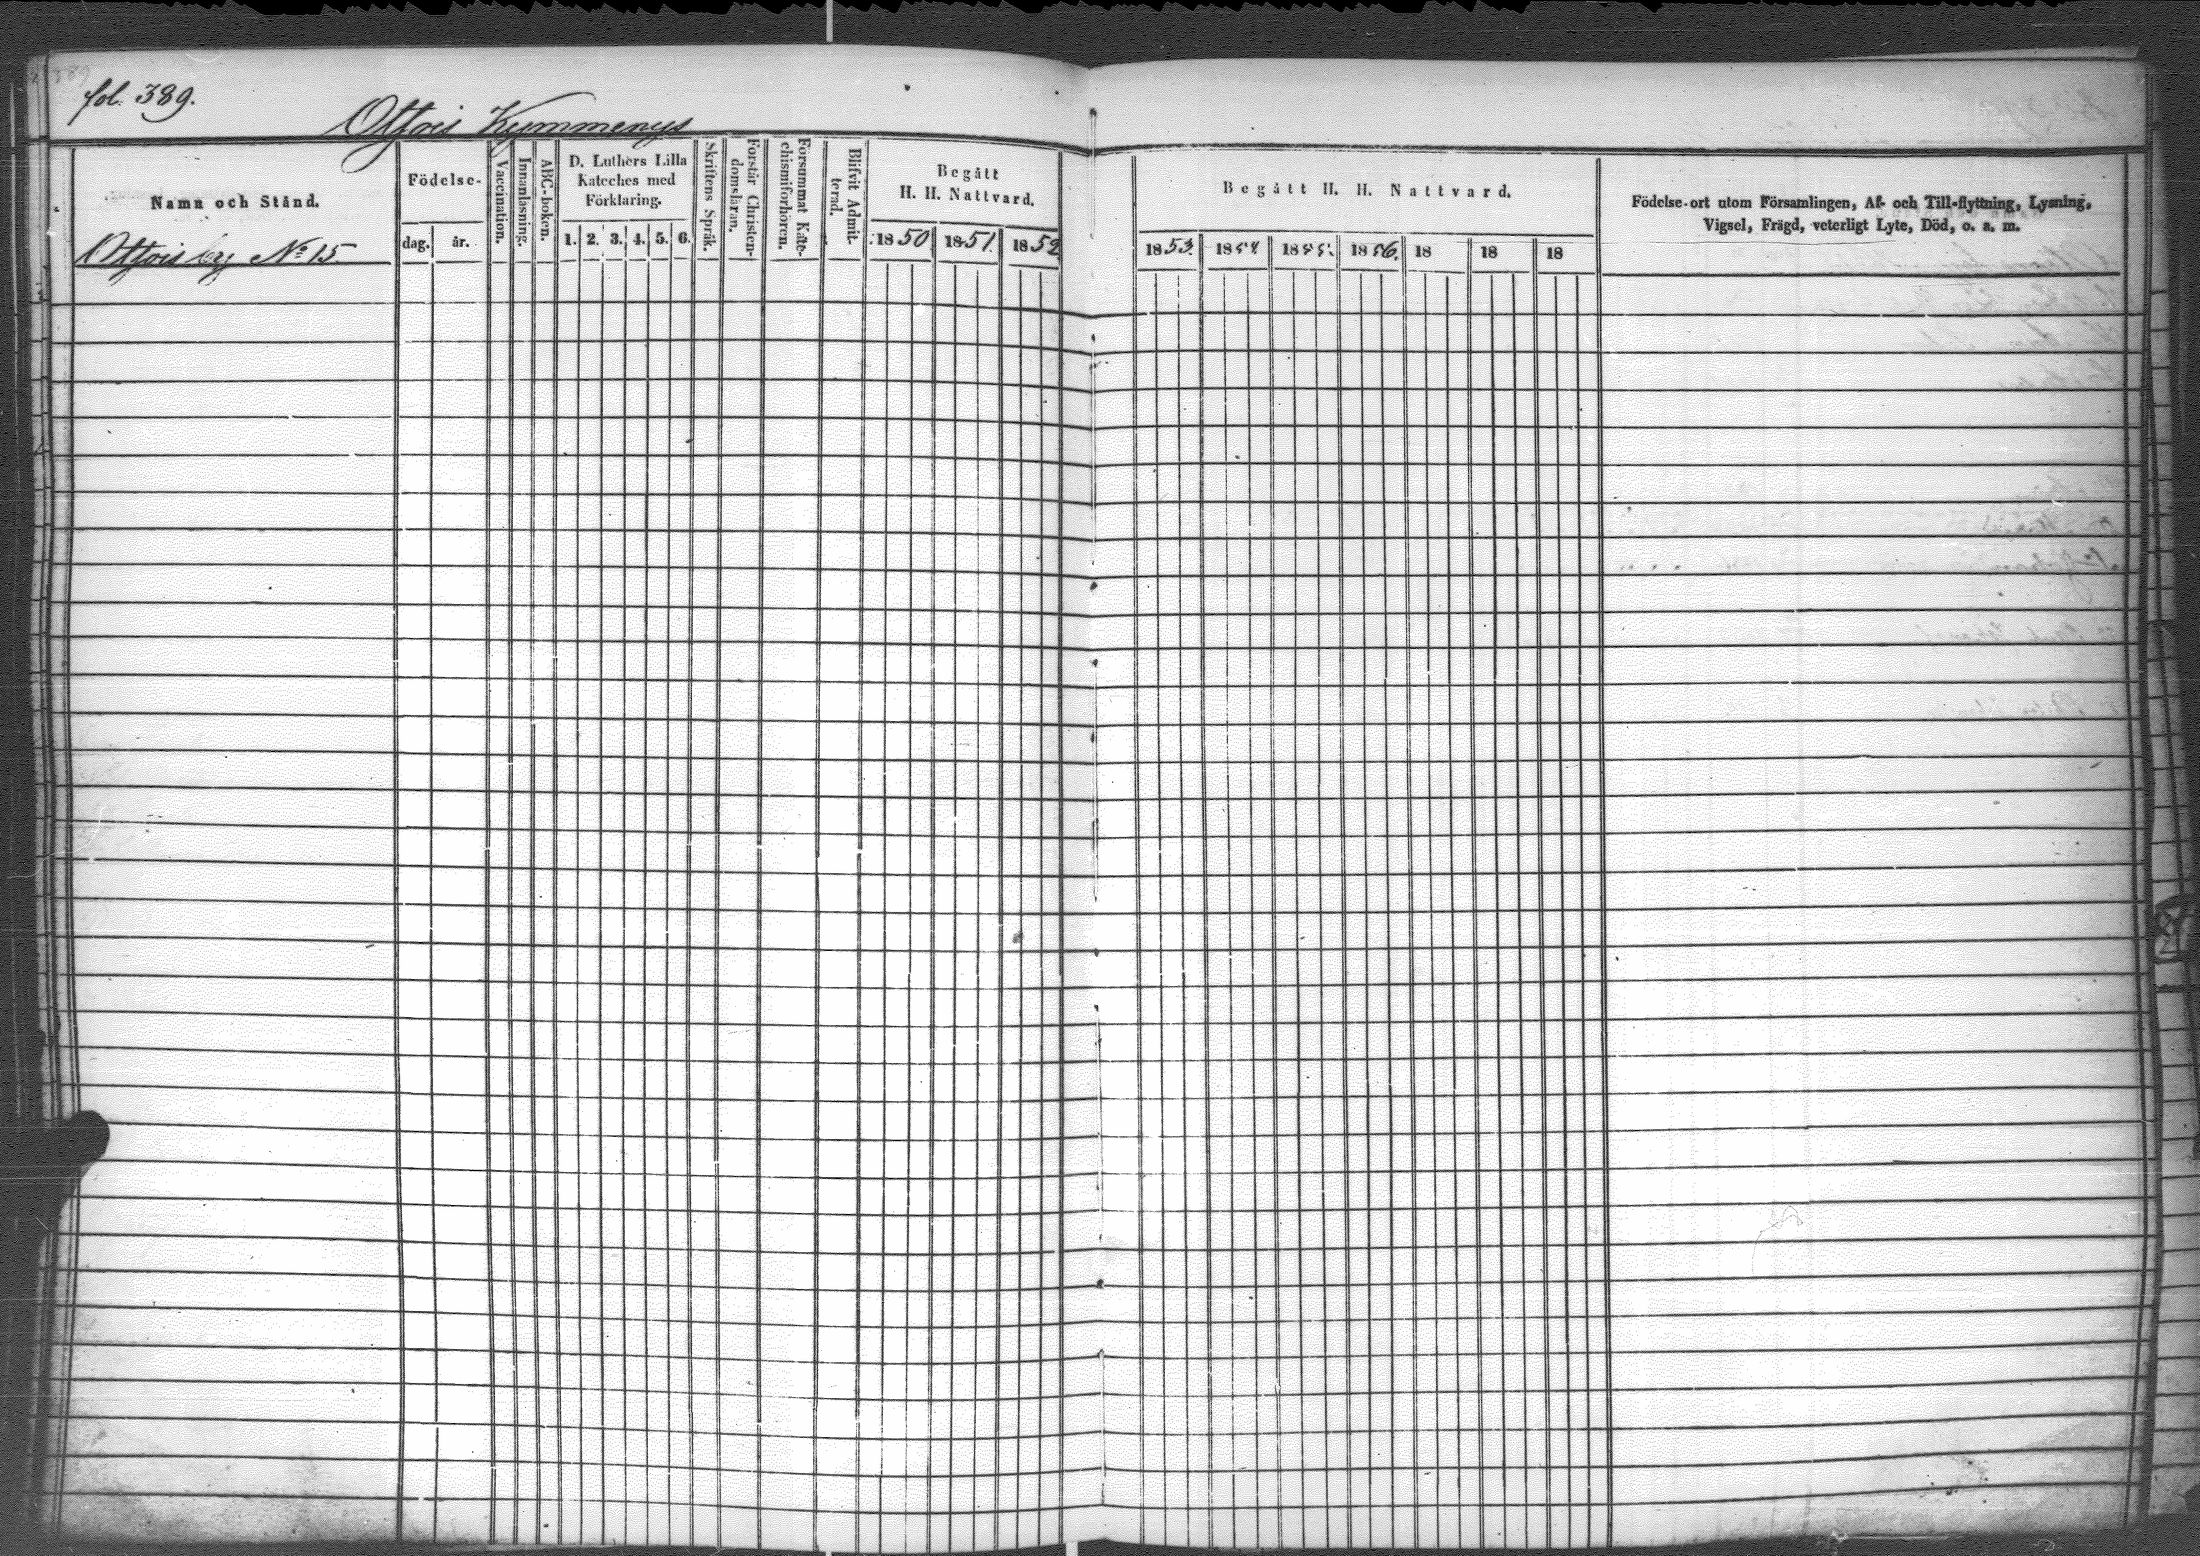 fol. 389.
Ottois Kymmenys
Namn och Stånd.
Födelse-
dag. år.
Vaccination.
Innanläsning.
ABC-boken.
D. Luthers Lilla
Kateches med
Förklaring.
1. 2. 3. 4. 5. 6.
Skriftens Språk.
Förstår Christen-
domsläran.
Försummat Kate-
chismiförhören.
Blifvit Admit-
terad.
Begått
H. H. Nattvard.
1850 1851. 1852
Begått H. H. Nattvard.
1853. 1854. 1855. 1856. 18 18 18
Födelse-ort utom Församlingen, Af- och Till-flyttning, Lysning,
Vigsel, Frägd, veterligt Lyte, Död, o. a. m.
Ottois by No 15